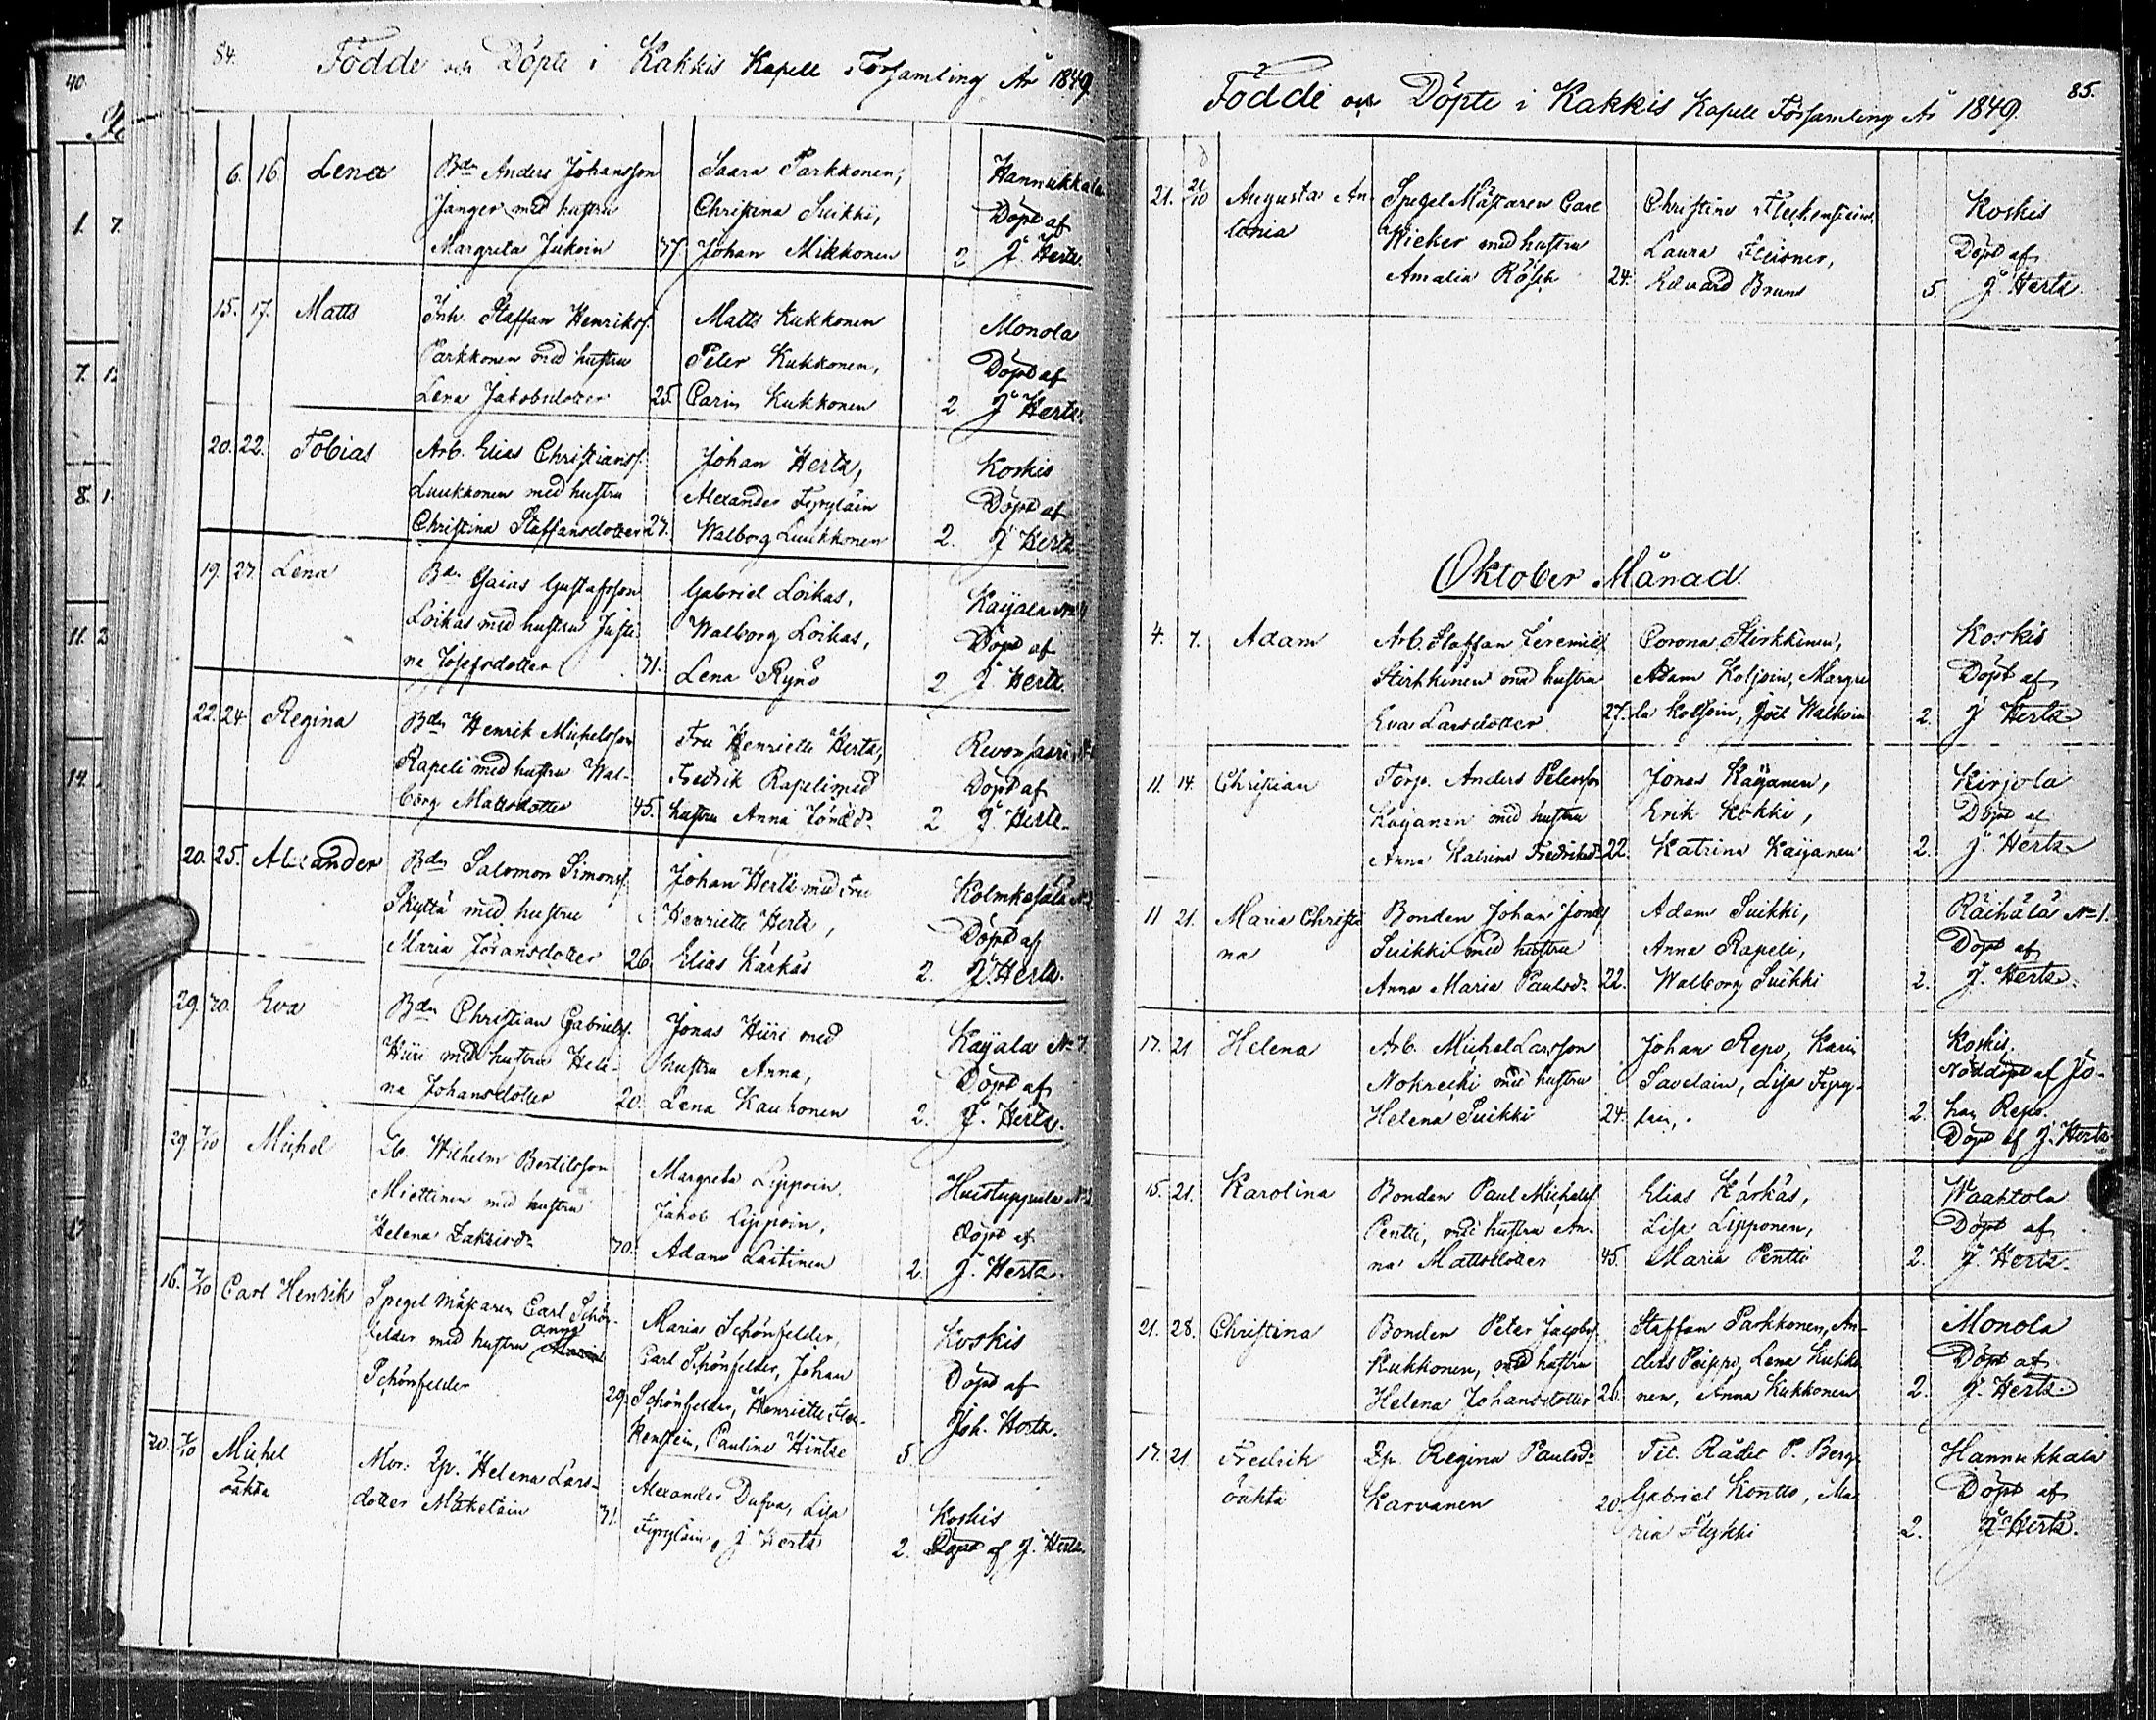 40.
1. 7.
7.
8. 1.
11. 2
14.
84.
Födde och Döpte i Kakkis Kapell Församling År 1849
6. 16. Lena Bdn Anders Johansson Saara Parkkonen, Hannukkala
Janger med hustru Christina Suikki, Döpt af
Margreta Jukoin 37. Johan Mikkonen 2 J. Hertz.
15. 17. Matts Inh. Staffan Henrikss. Matts Kukkonen Monola
Parkkonen med hustru Peter Kukkonen, Döpt af
Lena Jakobsdotter 25. Carin Kukkonen 2. J. Hertz.
20. 22. Tobias Arb. Elias Christianss. Johan Hertz, Koskis
Luukkonen med hustru Alexander Fyryläin Döpt af
Christina Staffansdotter 27. Walborg Luukkonen 2. J. Hertz
19. 27. Lena Bdn. Esaias Gustafsson Gabriel Loikas, Kayala No
Loikas med hustru Justi- Walborg Loikas, Döpt af
na Josefsdotter 31. Lena Rynö 2 J. Hertz.
22. 24. Regina Bdn Henrik Michelsson Fru Henriette Hertz, Revonsaari
Rapeli med hustru Wal- Fredrik Rapeli med Döpt af
borg Mattsdotter 45. hustru Anna 2 J. Hertz.
20. 25. Alexander Bdn Salomon Simonss. Johan Hertz med Fru Kolmkesälä
Skyttä med hustru Henriette Hertz, Döpt af
Maria Jöransdotter 26. Elias Kärkäs 2. J. Hertz.
29. 30. Eva Bdn Christian Gabrielss. Jonas Hüri med Kayala No 7.
Hüri med hustru Hele- hustru Anna, Döpt af
na Johansdotter 20. Lena Kauhonen 2. J. Hertz.
29 7/10 Michel Wilhelm Bertilsson Margreta Lippoin.
Miettinen med hustru Jakob Lippoin, Döpt af
Helena Zakrisdr 30. Adam Laitinen 2. J. Hertz.
16. 7/10 Carl Henrik Spegel Mästaren Carl Schön- Maria Schönfelder, Koskis
felder med hustru Anna Carl Schönfelder, Johan Döpt af
Schönfelder 29. Schönfelder, Henriette Flec- Joh. Hertz.
kenstein, Pauline Hintze 5.
30. 7/10 Michel Mor: Helena Lars- Alexander Dufva, Lisa Koskis
oäkta dotter Mäkeläin 31. Fyryläin, J. Hertz 2. Döpt af J. Hertz.
Födde och Döpte i Kakkis Kapell Församling År 1849. 85.
21. 21/10 Augusta An- Spegel Mästaren Carl Christine Fleckenstein, Koskis
tonia Wieker med hustru Laura Fleisner, Döpt af
Amalia Rösch 24. Edvard Bruns 5. J. Hertz.
Oktober Månad.
4. 7. Adam Arb. Staffan Jeremiæss. Corona Stirkkinen, Koskis
Stirkkinen med hustru Adam Koljoin, Margre Döpt af
Eva Larsdotter 27. ta Koljoin, Joël Walkoin 2. J. Hertz
11. 14. Christian Torp. Anders Petersson Jonas Käyanen, Kirjola
Käyanen med hustru Erik Kokki, Döpt af
Anna Katrina Fredriksdr 22. Katrina Käiyanen 2. J. Hertz
11 21. Maria Christi Bonden Johan Jonæss. Adam Suikki, Räihälä No 1.
na Suikki med hustru Anna Rapeli, Döpt af
Anna Maria Paulsdr 22. Walborg Suikki 2. J. Hertz.
17. 21 Helena Arb. Michel Larsson Johan Repo, Karin Koskis.
Nokrecki med hustru Savolain, Lisa Fyry- Nöddöpt af Jo-
Helena Suikki 24. läin. 2. han Repo.
Döpt af J. Hertz
15. 21. Karolina Bonden Paul Michelss. Elias Kärkäs, Waaktola
Pentti, med hustru An- Lisa Lipponen, Döpt af
na Mattsdotter 45. Maria Pentti 2. J. Hertz.
21. 28. Christina Bonden Peter Jacobss. Staffan Parkkonen, An- Monola
Kukkonen, med hustru ders Peippo, Lena Kukko Döpt af
Helena Johansdotter 26. nen, Anna Kukkonen 2. J. Hertz.
17. 21 Fredrik Regina Paulsdr Tit. Rådet P. Berg, Hannukkala
oäkta Karvanen 20. Gabriel Kontto, Ma Döpt af
ria Flykki 2. J. Hertz.